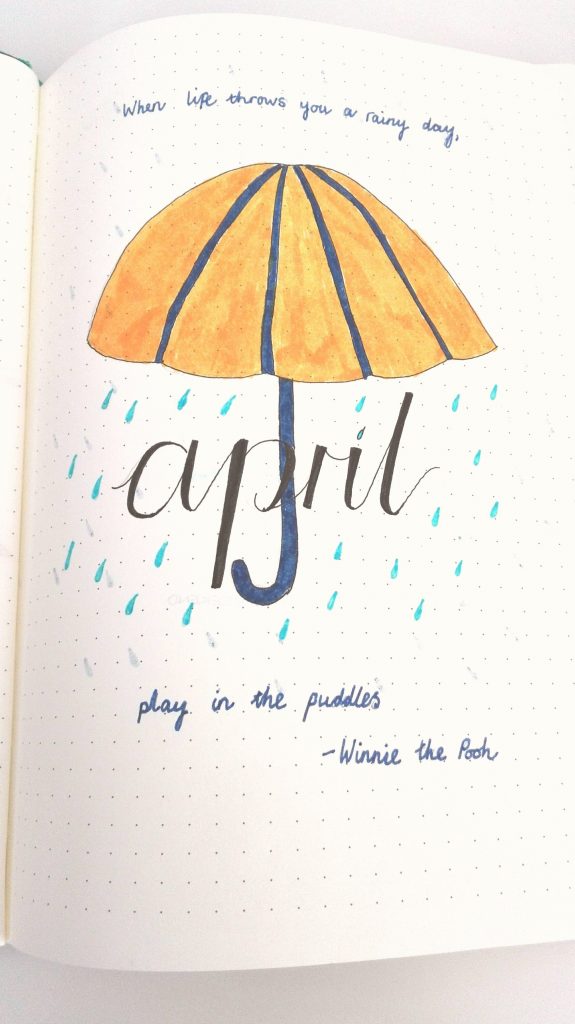 When life throws you a rainy day,
april
play in the puddles
-Winnie the Pooh